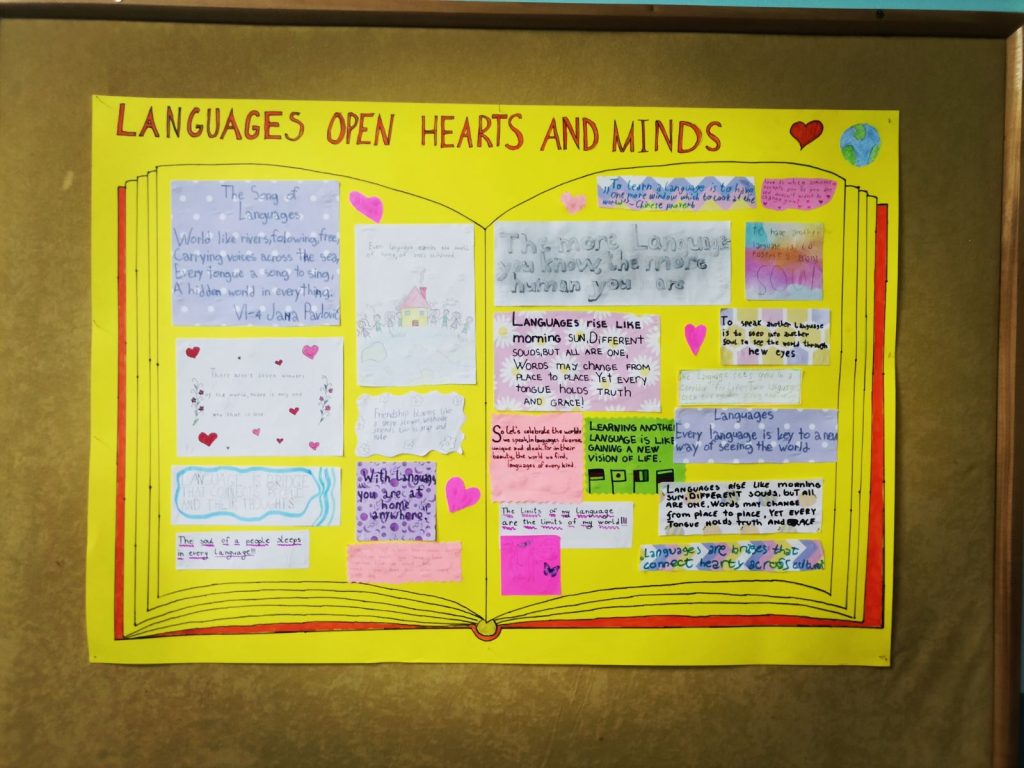 LANGUAGES OPEN HEARTS AND MINDS
The Song of
Languages
World like rivers, folowing, free,
Carrying voices across the sea,
Every tongue a song to sing,
A hidden world in everything.
VI-4 Jana Pavlović
There aren't seven wonders
of the world, there is only one
and that is love.
LANGUAGE IS BRIDGE
THAT CONNECTS PEOPLE
AND THEIR THOUGHTS
The soul of a people sleeps
in every language!!
Even language
Friendship blooms like
With language
you are at
home
anywhere.
"To learn a language is to have
one more window which to look at the
world" - Chinese proverb
The more Language
you know, the more
human you are
To have another
language is to
possess a
SOUL
LANGUAGES RISE LIKE
morning SUN, DIFFERENT
SOUDS, BUT ALL ARE ONE,
WORDS MAY CHANGE FROM
PLACE TO PLACE. YET EVERY
TONGUE HOLDS TRUTH
AND GRACE!
To speak another language
is to step into another
soul to see the world through
new eyes
So let's celebrate the words
we speak, In languages diverse,
unique and sleek. For in their
beauty, the world we find,
languages of every kind.
LEARNING ANOTHER
LANGUAGE IS LIKE
GAINING A NEW
VISION OF LIFE.
Languages
Every language is key to a new
way of seeing the world
The limits of my language
are the limits of my world!!!
LANGUAGES RISE LIKE morning
SUN, DIFFERENT SOUDS, BUT ALL
ARE ONE, WORDS MAY CHANGE
FROM PLACE TO PLACE, YET EVERY
TONGUE HOLDS TRUTH AND GRACE
Languages are briges that
connect hearty across